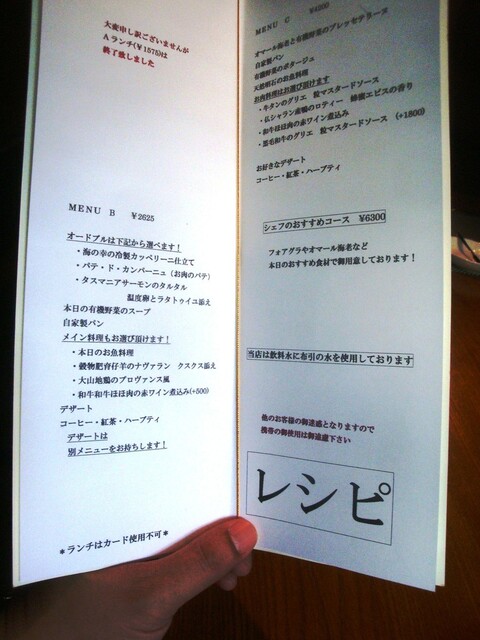 大変申し訳ございませんが
Aランチ(¥1575)は
終了致しました
MENU B ¥2625
オードブルは下記から選べます！
・海の幸の冷製カッペリーニ仕立て
・パテ・ド・カンパーニュ（お肉のパテ）
・タスマニアサーモンのタルタル
温度卵とラタトゥイユ添え
本日の有機野菜のスープ
自家製パン
メイン料理もお選び頂けます！
・本日のお魚料理
・穀物肥育仔羊のナヴァラン クスクス添え
・大山地鶏のプロヴァンス風
・和牛和牛ほほ肉の赤ワイン煮込み(+500)
デザート
コーヒー・紅茶・ハーブティ
デザートは
別メニューをお持ちします！
＊ランチはカード使用不可＊
MENU C
オマール海老と有機野菜のプレッセテリーヌ
自家製パン
有機野菜のポタージュ
天然明石のお魚料理
お肉料理はお選び頂けます
・牛タンのグリエ 粒マスタードソース
・仏シャラン産鴨のロティー 蜂蜜エピスの香り
・和牛ほほ肉の赤ワイン煮込み
・黒毛和牛のグリエ 粒マスタードソース (+1800)
お好きなデザート
コーヒー・紅茶・ハーブティ
シェフのおすすめコース ¥6300
フォアグラやオマール海老など
本日のおすすめ食材で御用意しております！
当店は飲料水に布引の水を使用しております
他のお客様の御迷惑となりますので
携帯の御使用は御遠慮下さい
レシピ